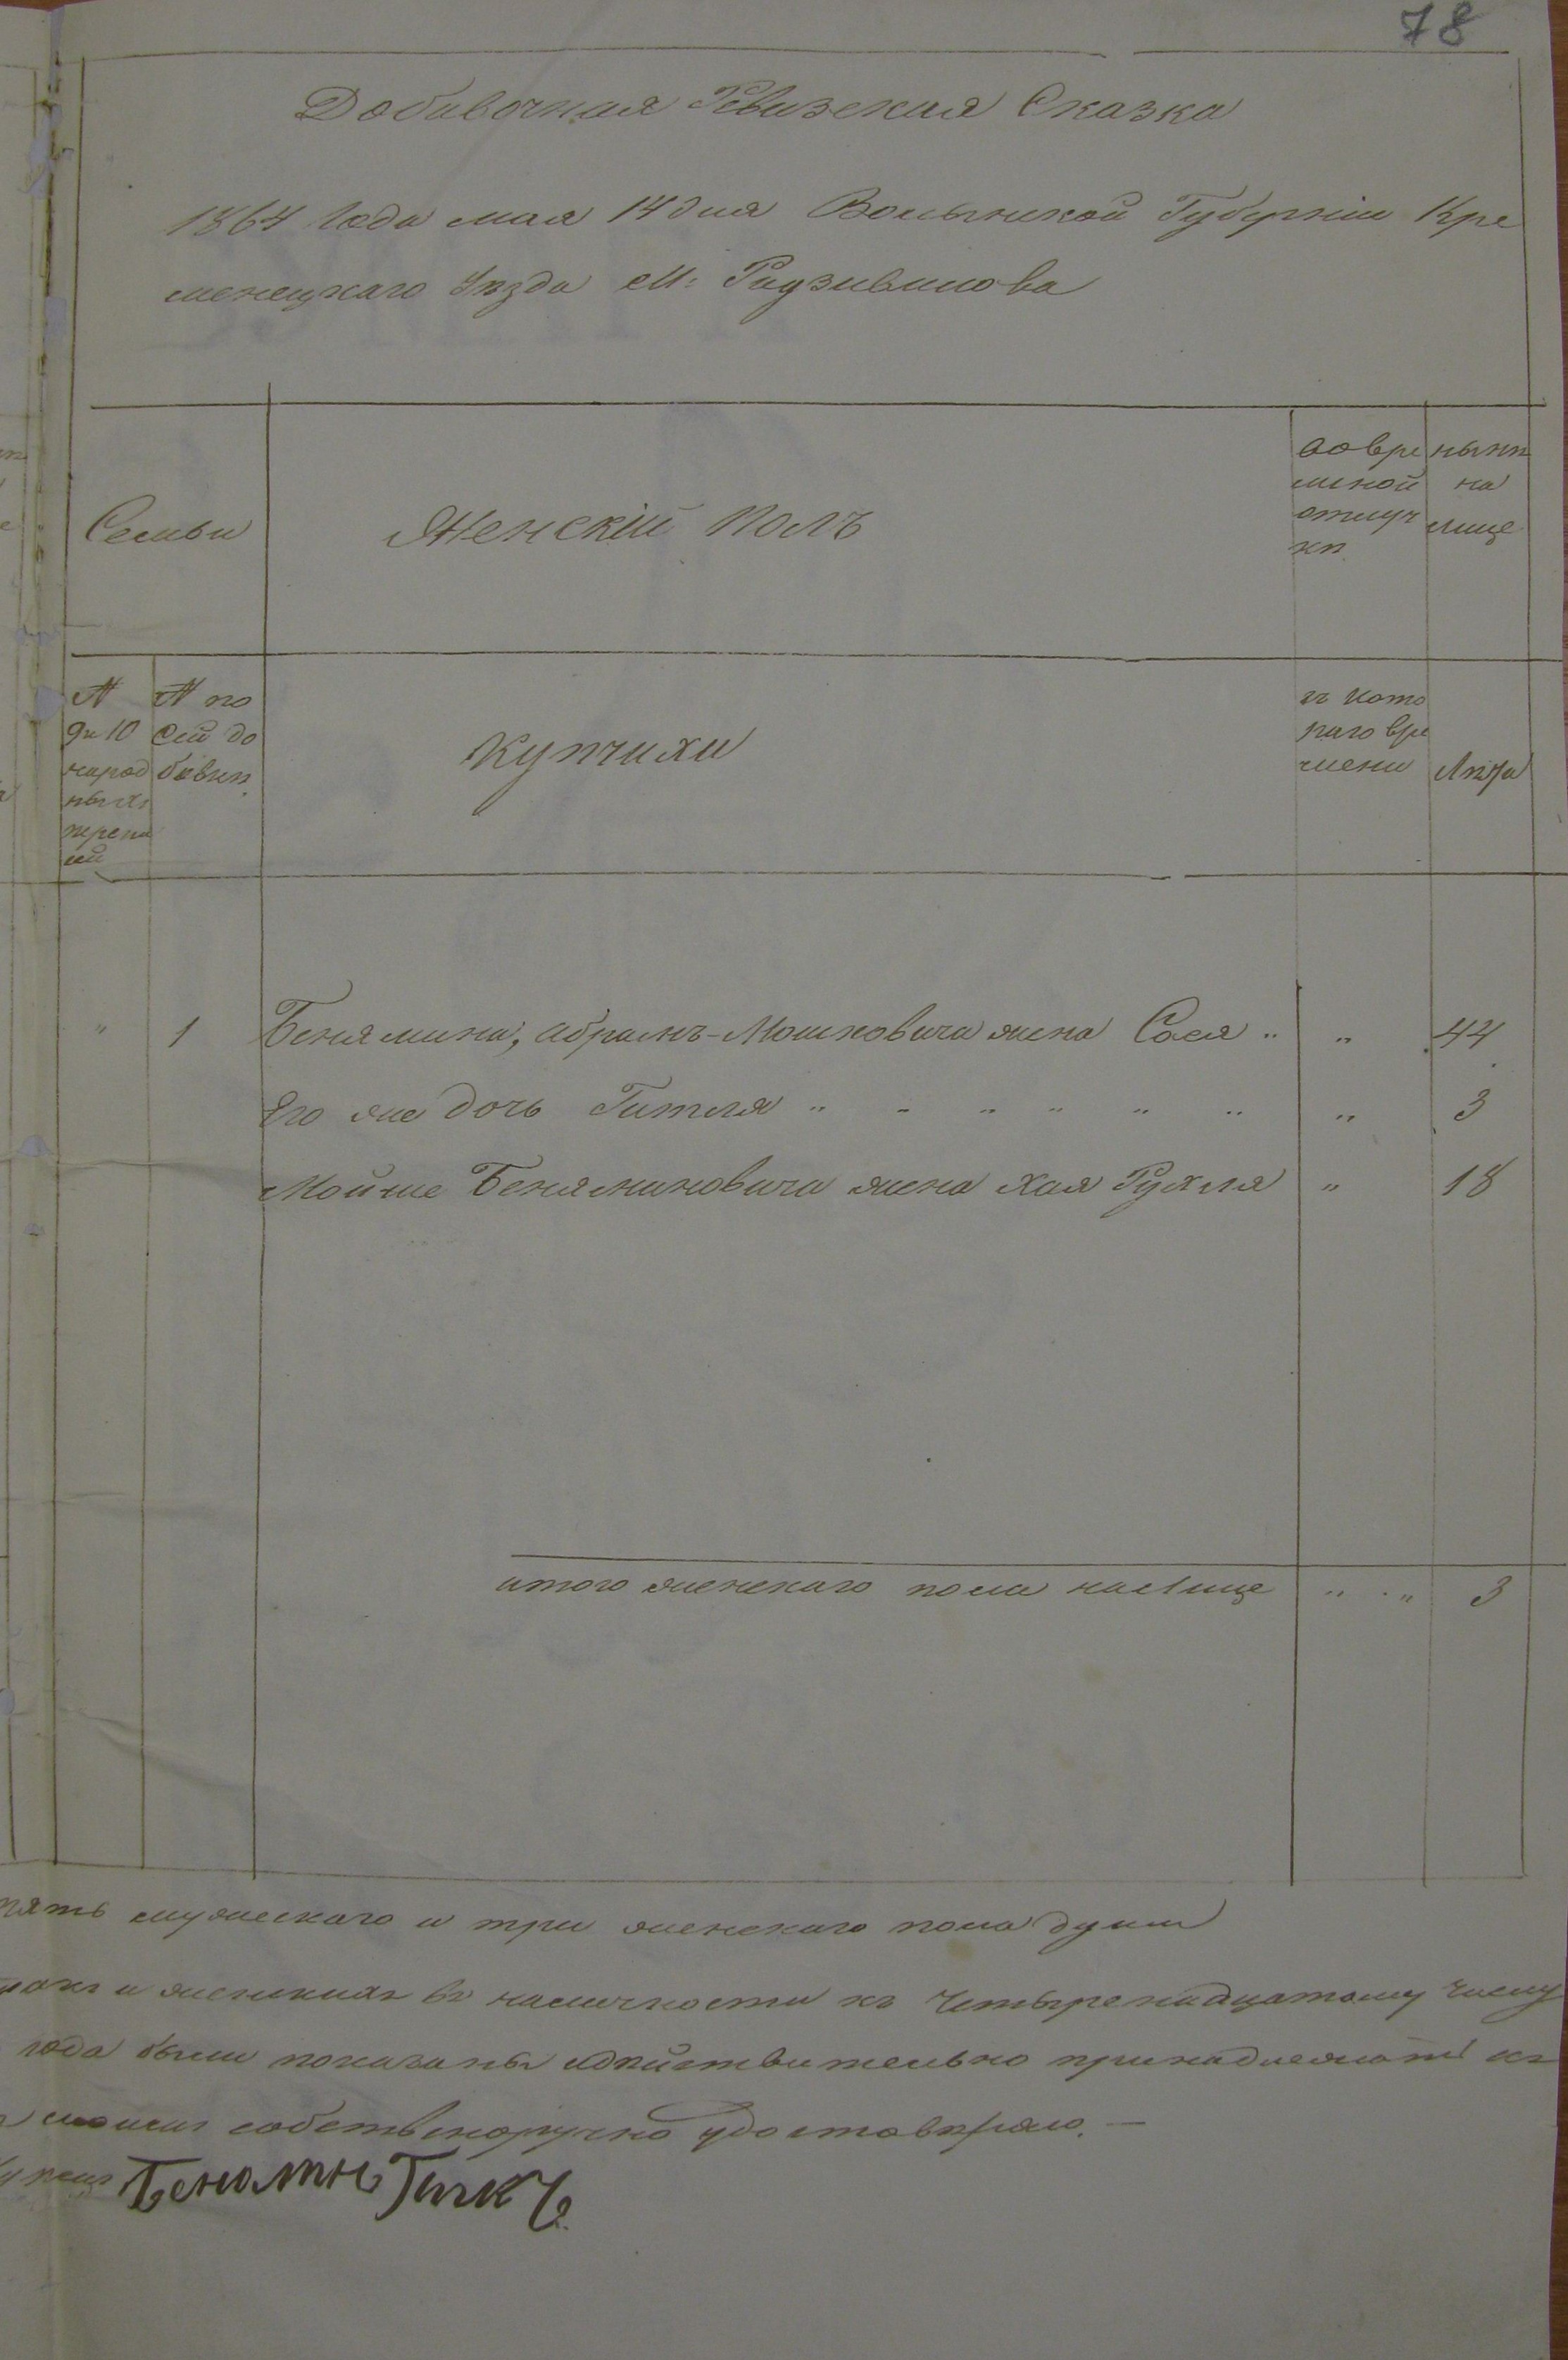 78
Добавочная Ревизская Сказка
1864 Года мая 14 дня Волынской Губерніи Кре
менецкаго Уѣзда М: Радзивилова
Семьи
Женскій полъ
во вре
менной
отлуч
кѣ
нынѣ
на
лице
№
по 10
народ
ныхъ
переписи
№ по
сей до
бавкѣ
Купчихи
съ кото
раго вре
мени
Лѣта
" 1 Бенямина, Абрамъ-Мошковича жена Сося " " 44
Его же дочь Гитля " " " " " " " 3
Мойше Беняминовича жена Хая Рухля " 18
итого женскаго пола на лице " " 3
пять мужескаго и три женскаго пола душъ
и женскихъ въ наличности къ Четыренадцатому числу
года были показаны и дѣйствительно принадлежатъ къ
собственоручно удостовѣряю. —
Купецъ Бенямин